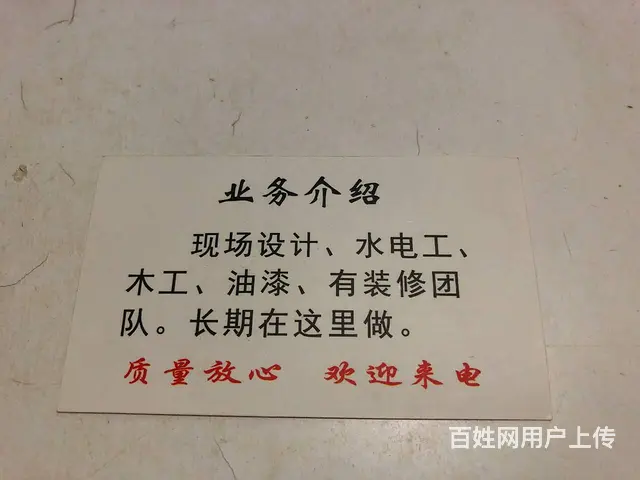 业务介绍
现场设计、水电工、
木工、油漆、有装修团
队。长期在这里做。
质量放心 欢迎来电
百姓网用户上传